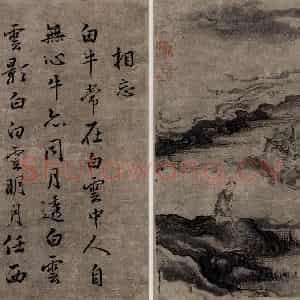 相忘
白牛常在白雲中人自
無心牛亦同月透白雲
雲影白白雲明月任西
shufawang.cn